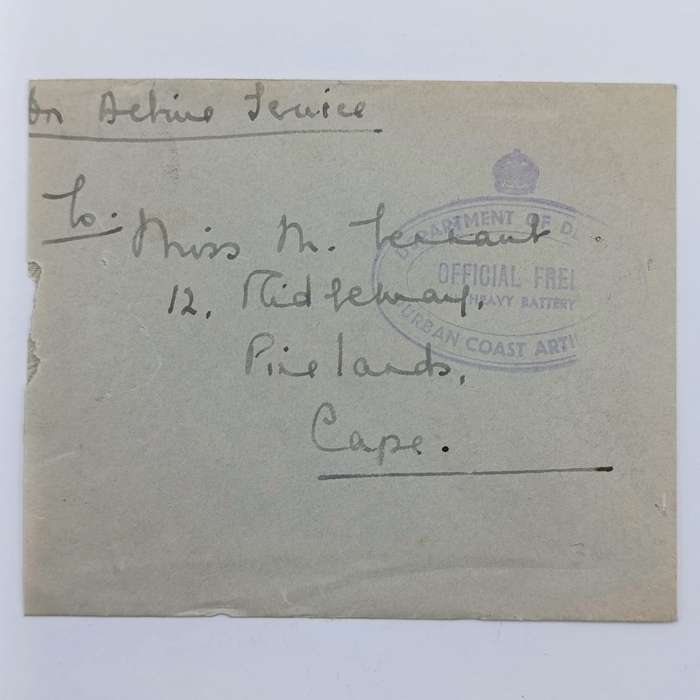 On Active Service
To:
Miss M. Tennant
12, Ridgeway,
Pinelands,
Cape.
DEPARTMENT OF DE
OFFICIAL FREE
HEAVY BATTERY
DURBAN COAST ARTI